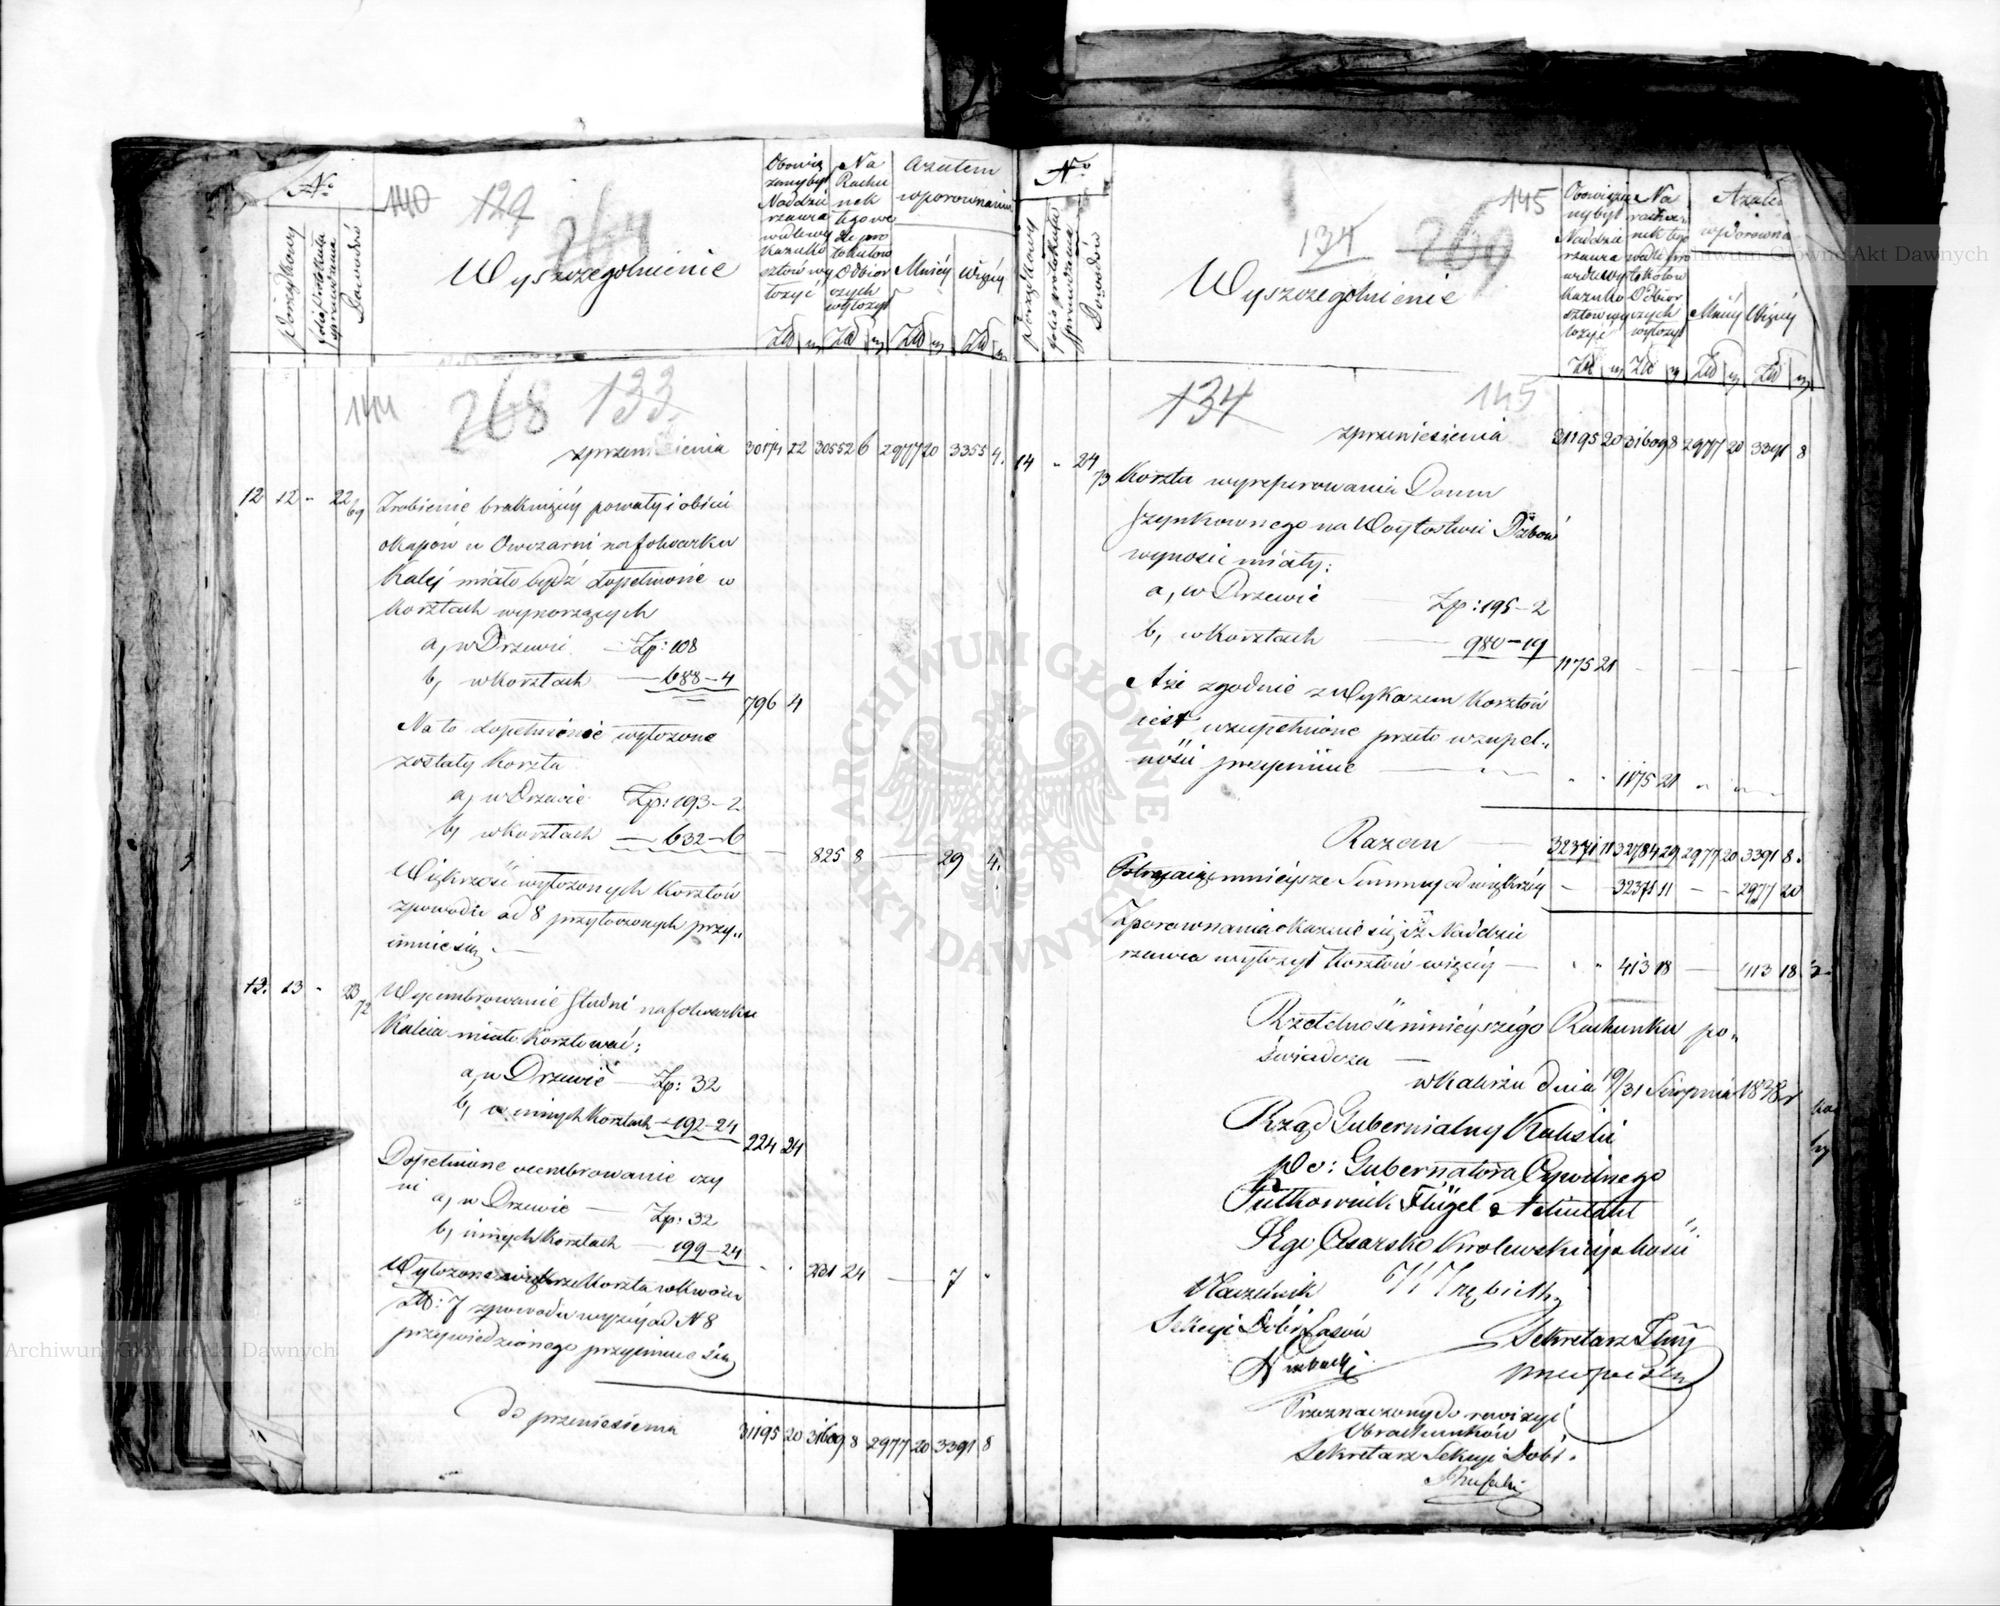 No
Porządkowy
folio protokułu sprawdzenia
Dowodów
140
127
264
Wyszczegolnienie
Obowią
zany był
Naddzie
rzawca
wedle wy
kazu ko
sztów wy
łożyć
Na
Rachu
nek
tegowe
dle pro
tokułow
Odbior
czych
wyłożył
Azatem
wporownaniu
Mniéy
Więcéy
Złł gr Złł gr Złł gr Złł gr
144
268
133
zprzeniesienia 30174 22 30552 6 2977 20 3355 4
12 12 - 22/69 Zrobienie brakuiącéy powały i obicie
okapow u Owczarni na folwarku
Kaléj miało bydź dopełnione w
Kosztach wynoszących
a, w Drzewie Zp: 108
b, w Kosztach — 688-4
796 4
Na to dopełnienie wyłożone
zostały Koszta
a, w Drzewie Zp: 193-2
b, w Kosztach — 632-6
825 8 — 29 4
Większość wyłożonych Kosztów
zpowodu ad 8 przytoczonych przy„
imuie się —
13. 13 - 23/72 Wycembrowanie Studni na folwarku
Kaleia miało Kosztować;
a, w Drzewie — Zp: 32
b, w innych Kosztach — 192-24
224 24
Dopełnione ocembrowanie czy
ni a, w Drzewie — Zp: 32
b, innych Kosztach — 199-24
231 24 — 7 "
Wyłożone większe Koszta w kwocie
Złł: 7 zpowodu wyżéy ad N 8
przywiedzionego przyimuie się
do przeniesienia 31195 20 31609 8 2977 20 3391 8
No
Porządkowy
folio protokułu sprawdzenia
Dowodów
134
269
145
Wyszczegolnienie
Obowiąza
ny był
Naddzie
rzawca
wedle wy
kazu ko
sztów wy
łożyć
Na
rachu
nek tego
wedle pro
tokułow
Odbior
czych
wyłożył
Azatem
wporówna
Mniéy
Więcéy
Złł gr Złł gr Złł gr Złł gr
134
145
zprzeniesienia 31195 20 31609 8 2977 20 3391 8
14 - 24/73 Koszta wyreperowania Domu
szynkownego na Woytostwie Dźbów
wynosić miały:
a, w Drzewie — Zp: 195-2
b, w Kosztach — 980-19
1175 21 — — —
A że zgodnie z Wykazem Kosztów
iest uzupełnione przeto w zupeł„
ności przyimuie — " " 1175 21 " "
Razem — 32371 11 32784 29 2977 20 3391 8
Potrącaiąc mnieysze Summy od większéy — 32371 11 — — 2977 20
Zporownania okazuie się, iż Naddzie
rzawca wyłożył Kosztów więcéy — " " 413 18 — 413 18
Rzetelność ninieyszégo Rachunku po„
świadcza —
w Kaliszu dnia 19/31 Sierpnia 1838 r
Rząd Gubernialny Kaliski
po: Gubernatora Cywilnego
Pułkownik Flügel Adiutant
Jego Cesarsko Krolewskiéy Mości
Naczelnik
Sekcyi Dóbr i Lasów
Sekretarz
Przeznaczony do rewizyi
Obrachunków
Sekretarz Sekcyi Dóbr.
ARCHIWUM GŁÓWNE AKT DAWNYCH
Archiwum Główne Akt Dawnych
Archiwum Główne Akt Dawnych